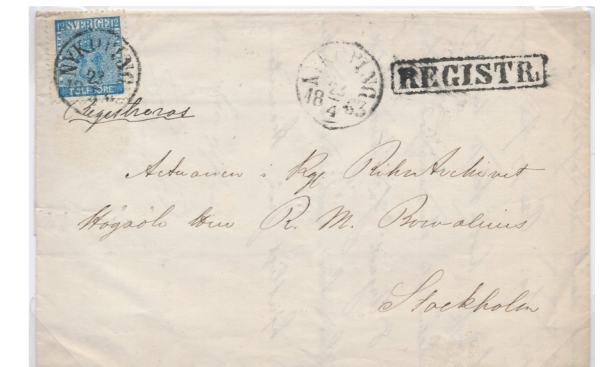 12 SVERIGE 12
NYKÖPING
22
TOLF ÖRE
NYKÖPING
22
18 4 63
REGISTR.
Registreras
Actuarien i Kgl. Riks Archivet
Högädle Herr R. M. Bowallius
Stockholm